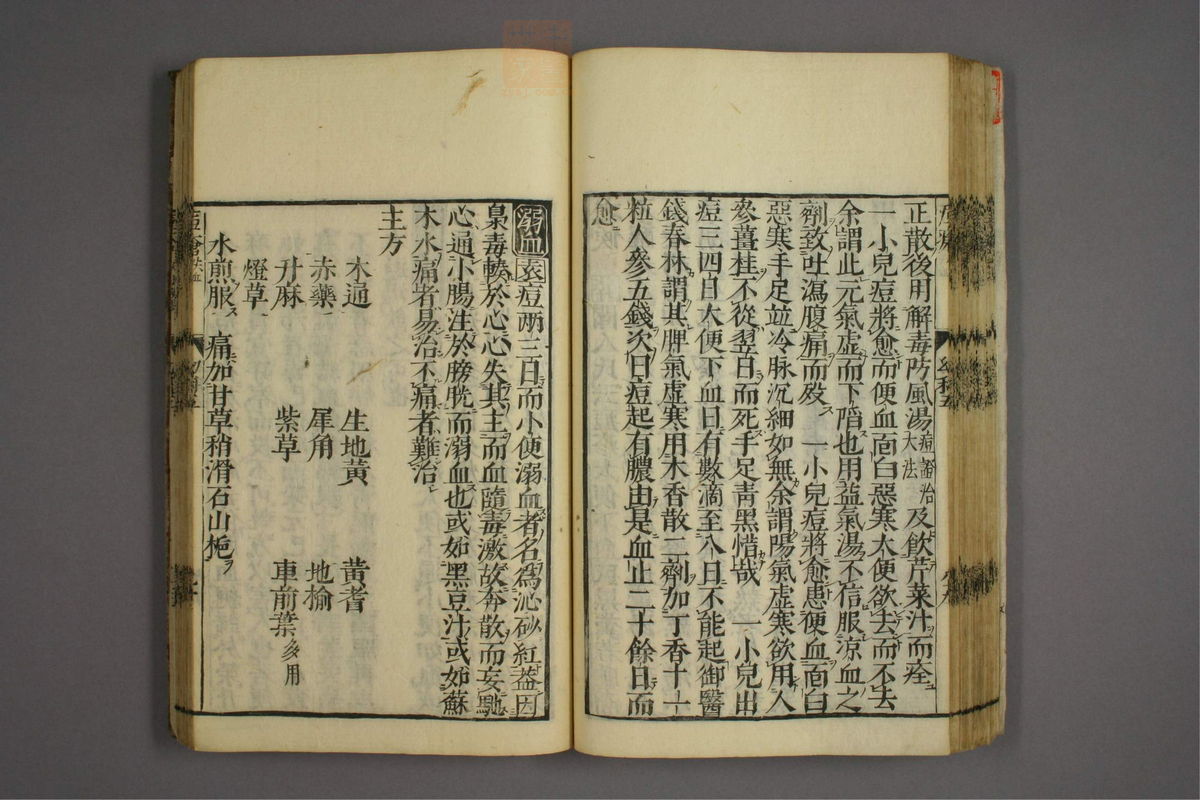 正散後用解毒防風湯痘證治大法及飲芹菜汁而痊
一小兒痘將愈而便血面白惡寒大便欲去而不去
余謂此元氣虛而下陷也用益氣湯不信服涼血之
劑致吐瀉腹痛而歿 一小兒痘將愈患便血面白
惡寒手足並冷脉沉細如無余謂陽氣虛寒欲用人
參薑桂不從翌日而死手足青黑惜哉 一小兒出
痘三四日大便下血日有數滴至八日不能起御醫
錢春林謂其脾氣虛寒用木香散二劑加丁香十一
粒人參五錢次日痘起有膿由是血止二十餘日而
愈
溺血 袁痘兩三日而小便溺血者名為沁砂紅益因
梟毒輳於心心失其主而血隨毒激故奔散而妄馳
心通小腸注於膀胱而溺血也或如黑豆汁或如蘇
木水痛者易治不痛者難治
主方
木通 生地黃 黃耆
赤藥 犀角 地榆
升麻 紫草 車前葉多用
燈草
水煎服 痛加甘草稍滑石山梔